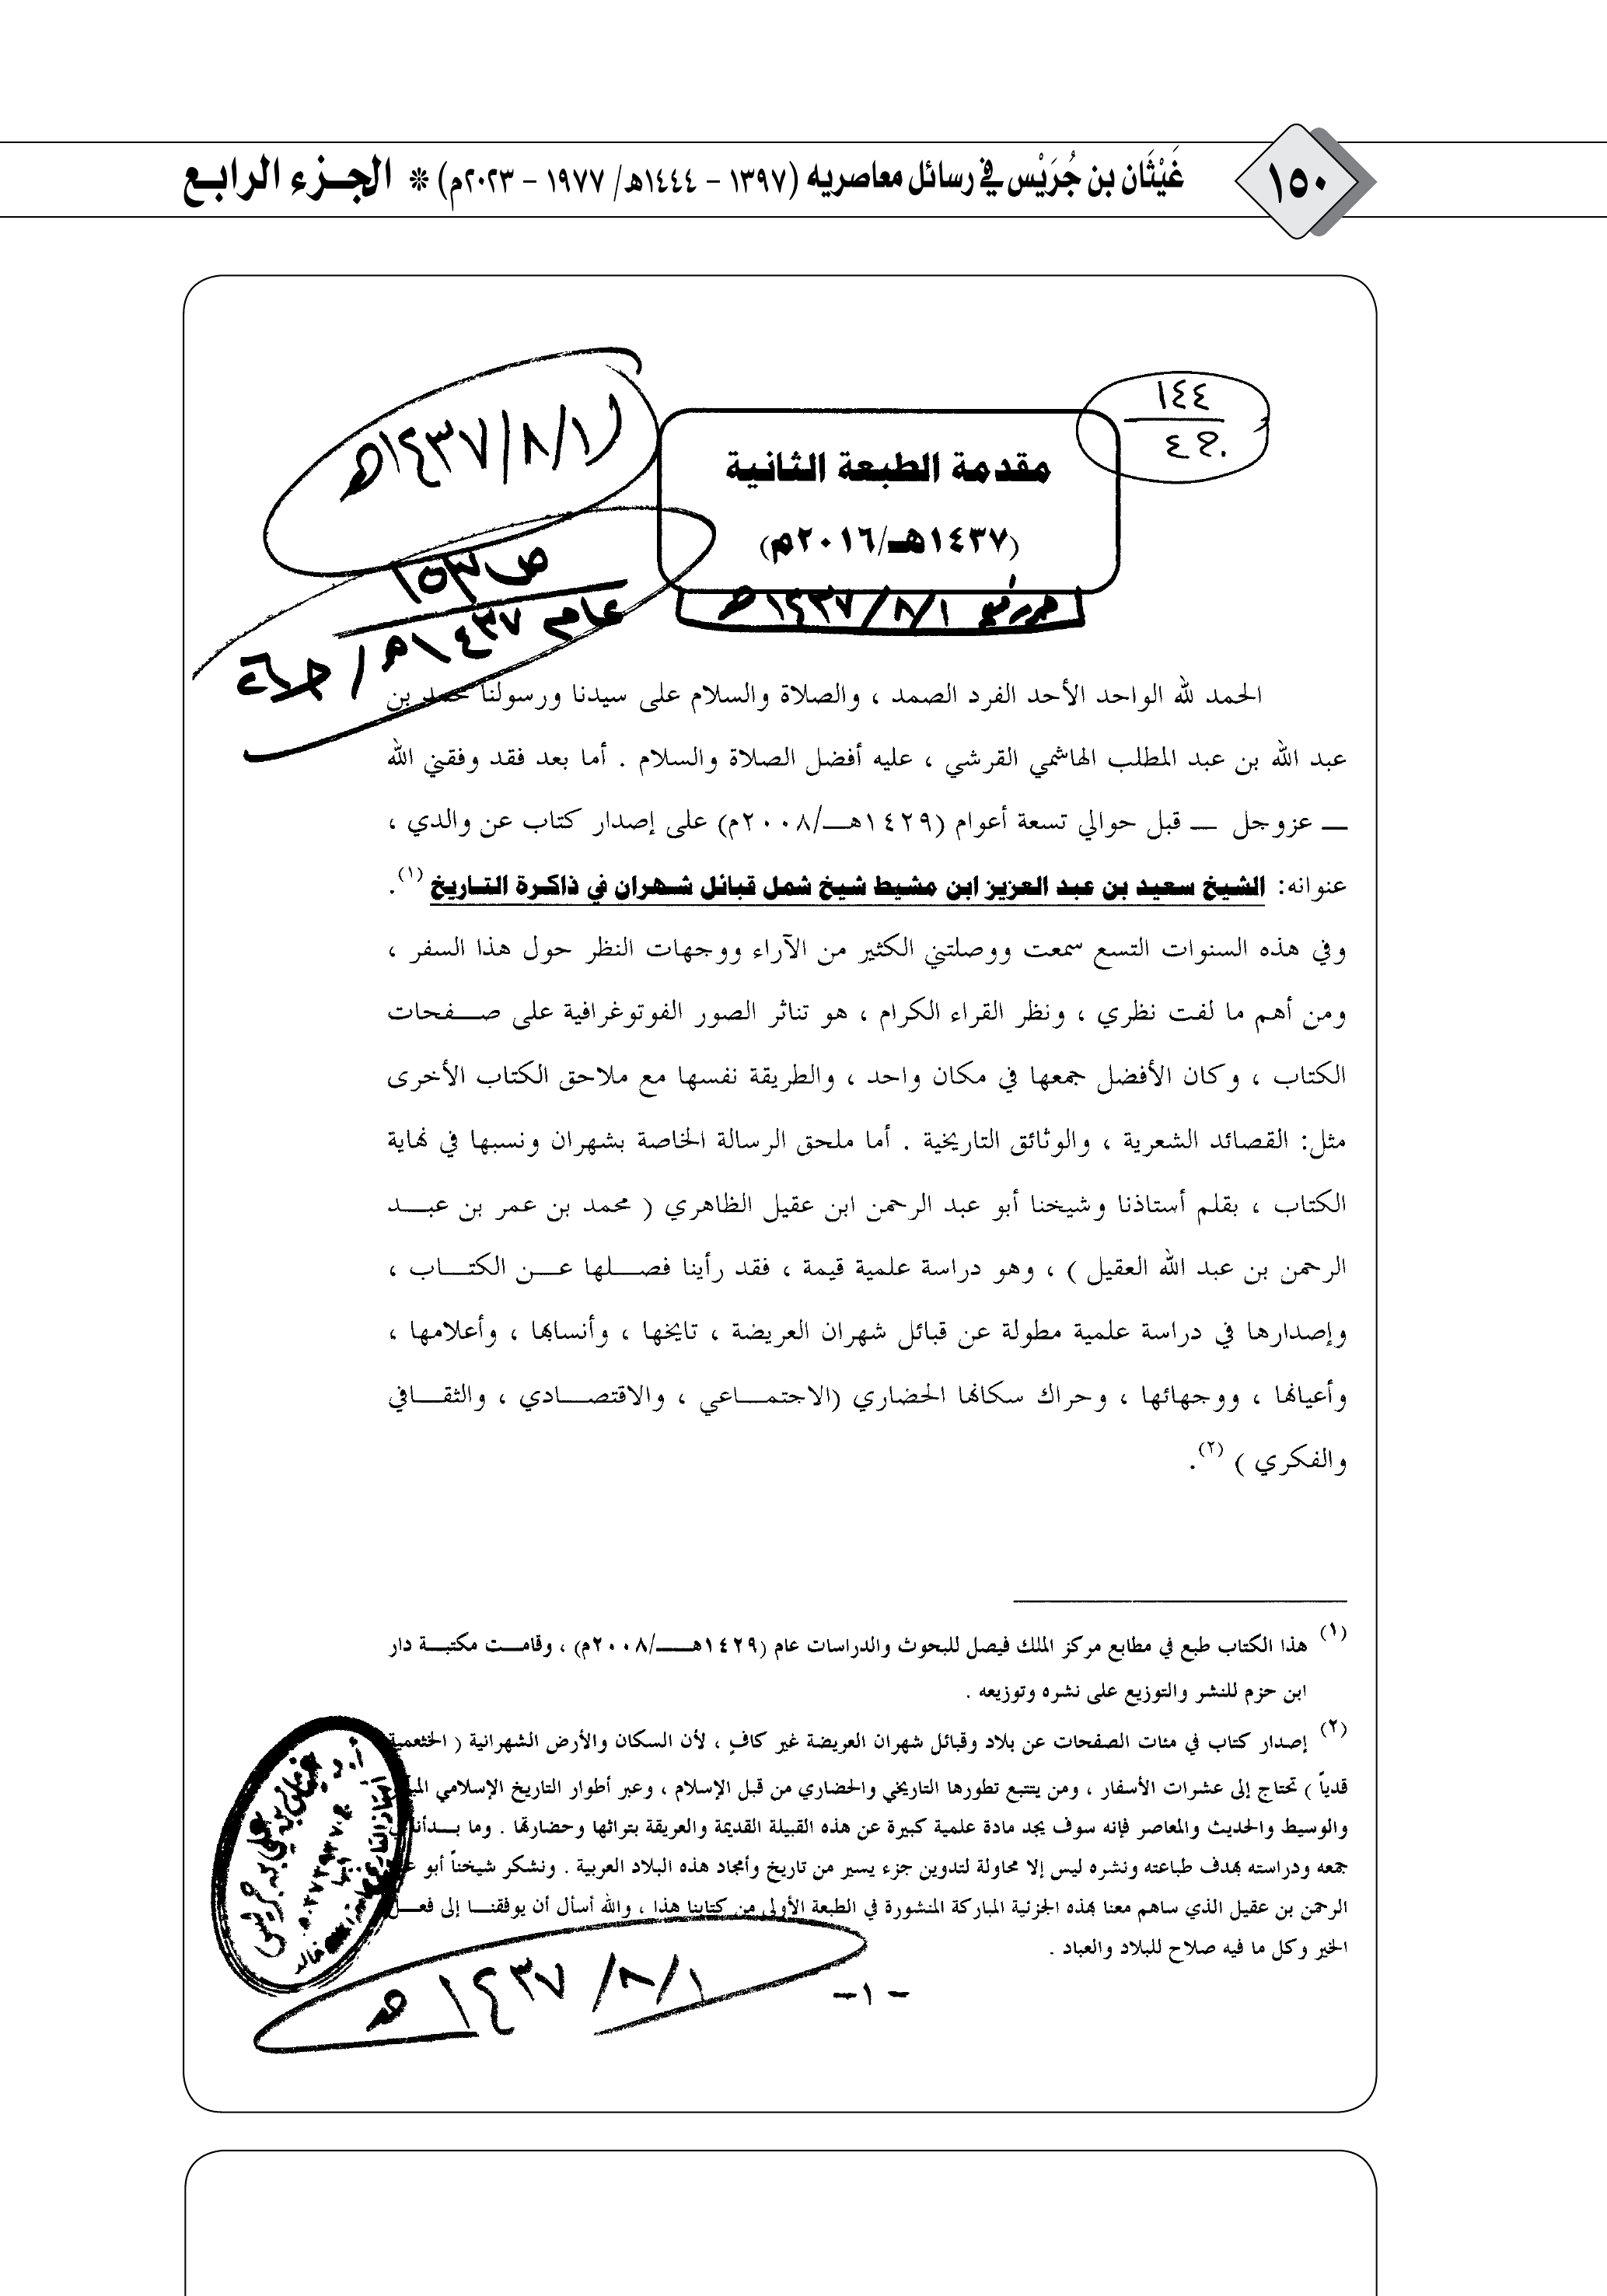 ١٥٠
غَيْثَان بن جُرَيْس في رسائل معاصريه (١٣٩٧ - ١٤٤٤هـ/ ١٩٧٧ - ٢٠٢٣م) * الجـزء الرابـع
١٤٤
١/٨/١٤٣٧هـ
مقدمة الطبعة الثانية
(١٤٣٧هـ/٢٠١٦م)
١/٨/١٤٣٧هـ
ص ١٥٣
عام ١٤٣٧هـ /
الحمد لله الواحد الأحد الفرد الصمد ، والصلاة والسلام على سيدنا ورسولنا محمد بن
عبد الله بن عبد المطلب الهاشمي القرشي ، عليه أفضل الصلاة والسلام . أما بعد فقد وفقني الله
ــ عزوجل ــ قبل حوالي تسعة أعوام (١٤٢٩هــ/٢٠٠٨م) على إصدار كتاب عن والدي ،
عنوانه: الشيخ سعيد بن عبد العزيز ابن مشيط شيخ شمل قبائل شهران في ذاكرة التاريخ (١).
وفي هذه السنوات التسع سمعت ووصلتني الكثير من الآراء ووجهات النظر حول هذا السفر ،
ومن أهم ما لفت نظري ، ونظر القراء الكرام ، هو تناثر الصور الفوتوغرافية على صـفحات
الكتاب ، وكان الأفضل جمعها في مكان واحد ، والطريقة نفسها مع ملاحق الكتاب الأخرى
مثل: القصائد الشعرية ، والوثائق التاريخية . أما ملحق الرسالة الخاصة بشهران ونسبها في نهاية
الكتاب ، بقلم أستاذنا وشيخنا أبو عبد الرحمن ابن عقيل الظاهري ( محمد بن عمر بن عبـد
الرحمن بن عبد الله العقيل ) ، وهو دراسة علمية قيمة ، فقد رأينا فصـلها عـن الكتـاب ،
وإصدارها في دراسة علمية مطولة عن قبائل شهران العريضة ، تايخها ، وأنسابها ، وأعلامها ،
وأعيانها ، ووجهائها ، وحراك سكانها الحضاري (الاجتمـاعي ، والاقتصـادي ، والثقـافي
والفكري ) (٢).
(١) هذا الكتاب طبع في مطابع مركز الملك فيصل للبحوث والدراسات عام (١٤٢٩هـــ/٢٠٠٨م) ، وقامـت مكتبـة دار
ابن حزم للنشر والتوزيع على نشره وتوزيعه .
(٢) إصدار كتاب في مئات الصفحات عن بلاد وقبائل شهران العريضة غير كافٍ ، لأن السكان والأرض الشهرانية ( الخثعمية
قدياً ) تحتاج إلى عشرات الأسفار ، ومن يتتبع تطورها التاريخي والحضاري من قبل الإسلام ، وعبر أطوار التاريخ الإسلامي
والوسيط والحديث والمعاصر فإنه سوف يجد مادة علمية كبيرة عن هذه القبيلة القديمة والعريقة بتراثها وحضارتها . وما بـدأنا
جمعه ودراسته بهدف طباعته ونشره ليس إلا محاولة لتدوين جزء يسير من تاريخ وأمجاد هذه البلاد العربية . ونشكر شيخناً أبو
الرحمن بن عقيل الذي ساهم معنا بهذه الجزئية المباركة المنشورة في الطبعة الأولى من كتابنا هذا ، والله أسأل أن يوفقنـا إلى فعـل
الخير وكل ما فيه صلاح للبلاد والعباد .
١/٨/١٤٣٧هـ
-١-